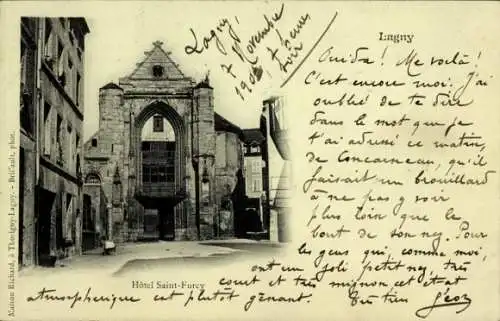 Lagny
Lagny
7 Novembre
1903 7 heures
du soir
Oui-da! Me voilà!
C'est encore moi: J'ai
oublié de te dire
dans le mot que je
t'ai adressé ce matin,
de Concarneau, qu'il
faisait un brouillard
à ne pas y voir
plus loin que le
bout de son nez. Pour
les gens qui, comme moi,
ont un joli petit nez, très
court et très mignon cet état
atmosphérique est plutôt gênant. Tu tien
Hôtel Saint-Furcy
Maison Richard, à Thorigny-Lagny. - Brif-ault, phot.